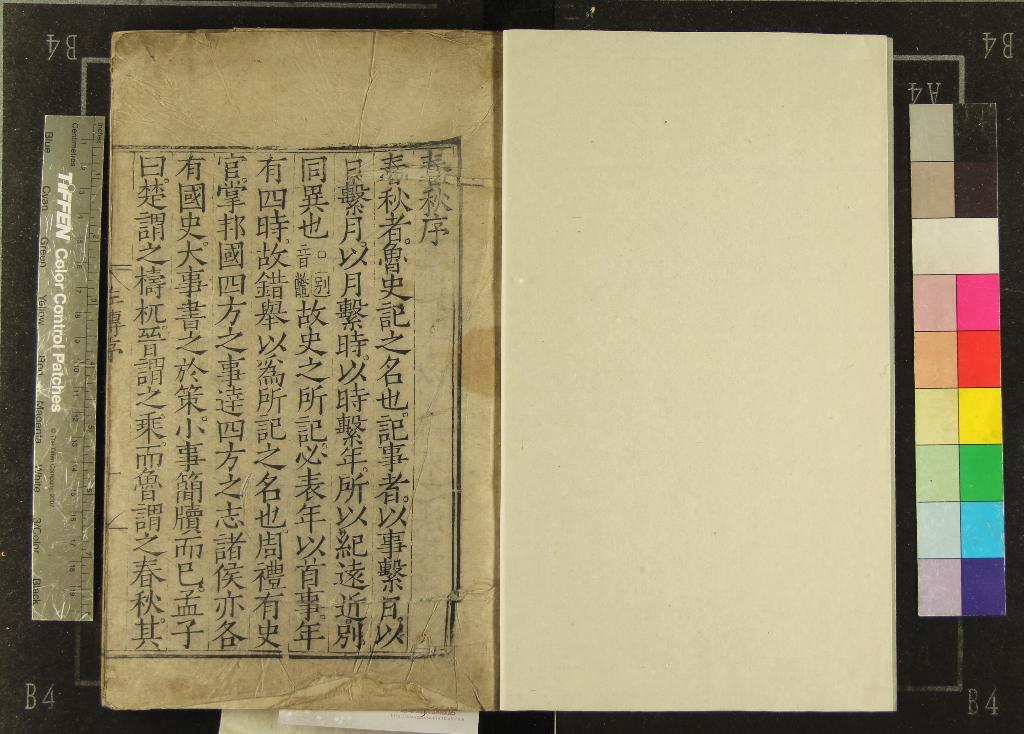 春秋序
春秋者魯史記之名也記事者以事繫日以
日繫月以月繫時以時繫年所以紀遠近別
同異也故史之所記必表年以首事年
有四時故錯舉以為所記之名也周禮有史
官掌邦國四方之事達四方之志諸侯亦各
有國史大事書之於策小事簡牘而已孟子
曰楚謂之檮杌晉謂之乘而魯謂之春秋其
左傳序
TIFFEN Color Control Patches
Centimetres
Inches
Blue
Cyan
Green
Yellow
Red
Magenta
White
3/Color
Black
B4
B4
A4
B4
B4